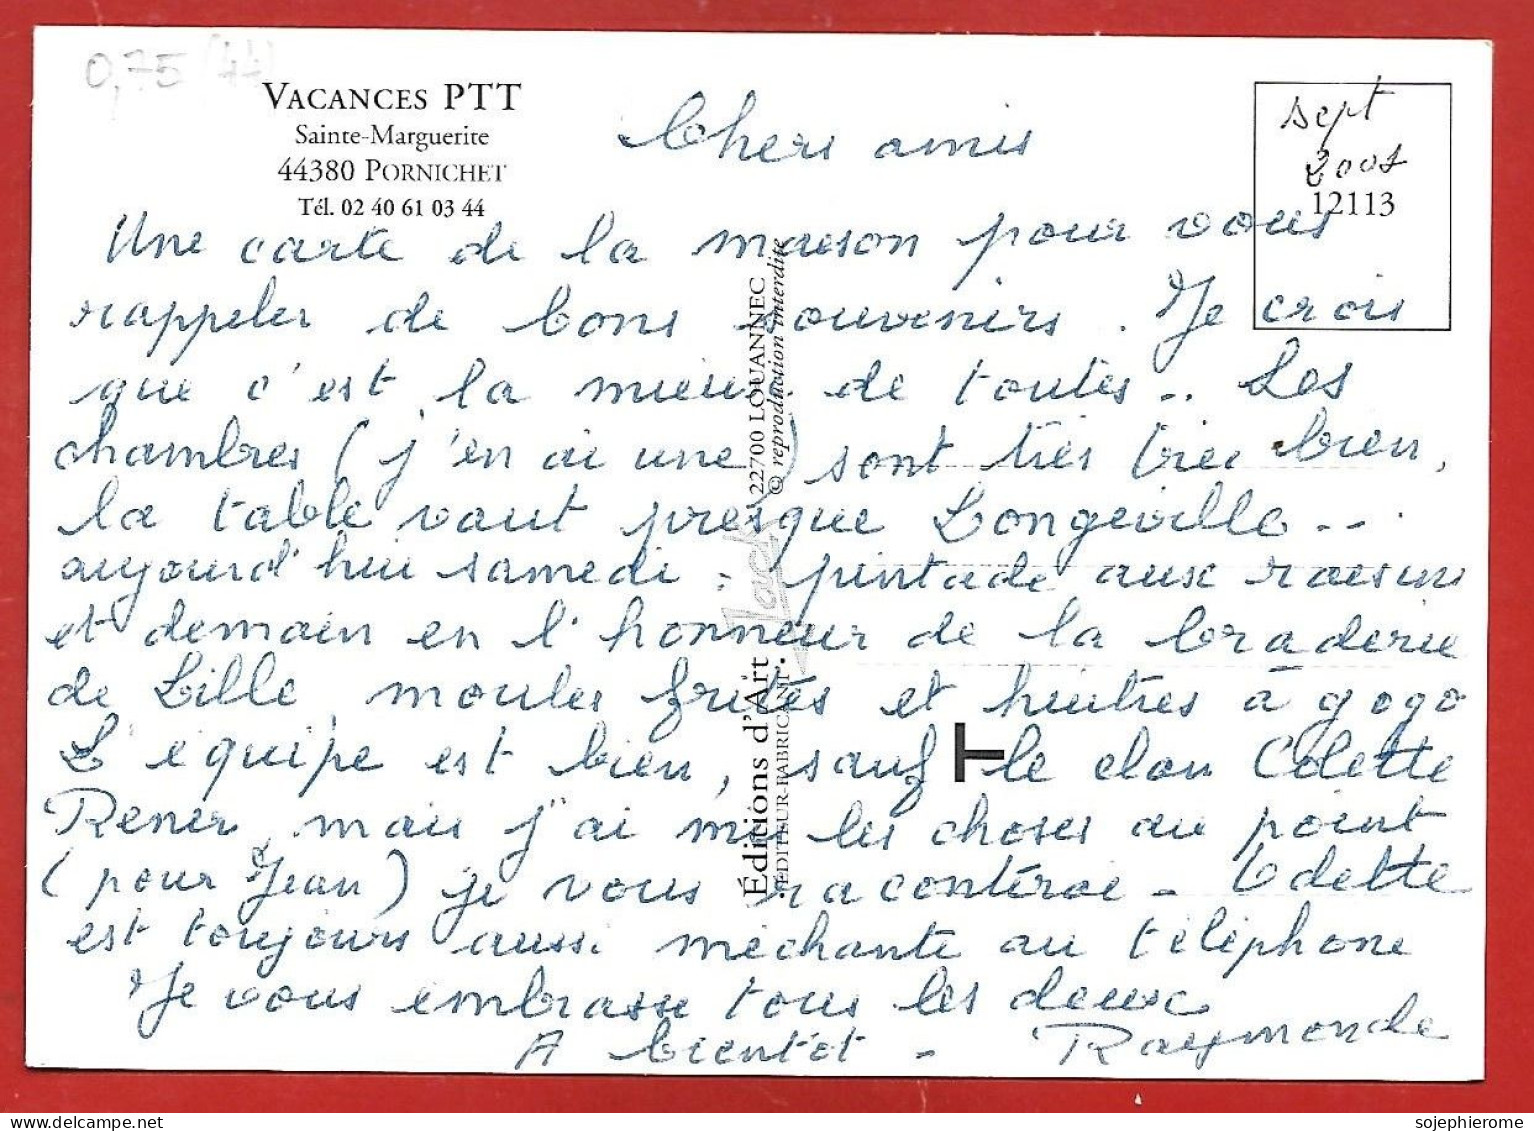 0,75 (44)
VACANCES PTT
Sainte-Marguerite
44380 PORNICHET
Tél. 02 40 61 03 44
sept
2001
12113
Chers amis
Une carte de la maison pour vous
rappeler de bons souvenirs. Je crois
que c'est la mieux de toutes.. Les
chambres (j'en ai une) sont très très bien,
la table vaut presque Longeville...
aujourd'hui samedi : pintade aux raisins
et demain en l'honneur de la braderie
de Lille moules frites et huitres à gogo
L'équipe est bien, sauf le clan Colette
Rener, mais j'ai mis les choses au point
(pour Jean) je vous raconterai - Odette
est toujours aussi méchante au téléphone
Je vous embrasse tous les deux
A bientôt - Raymonde
Éditions d'Art Jack
ÉDITEUR-FABRICANT
22700 LOUANNEC
© reproduction interdite
sojephierome